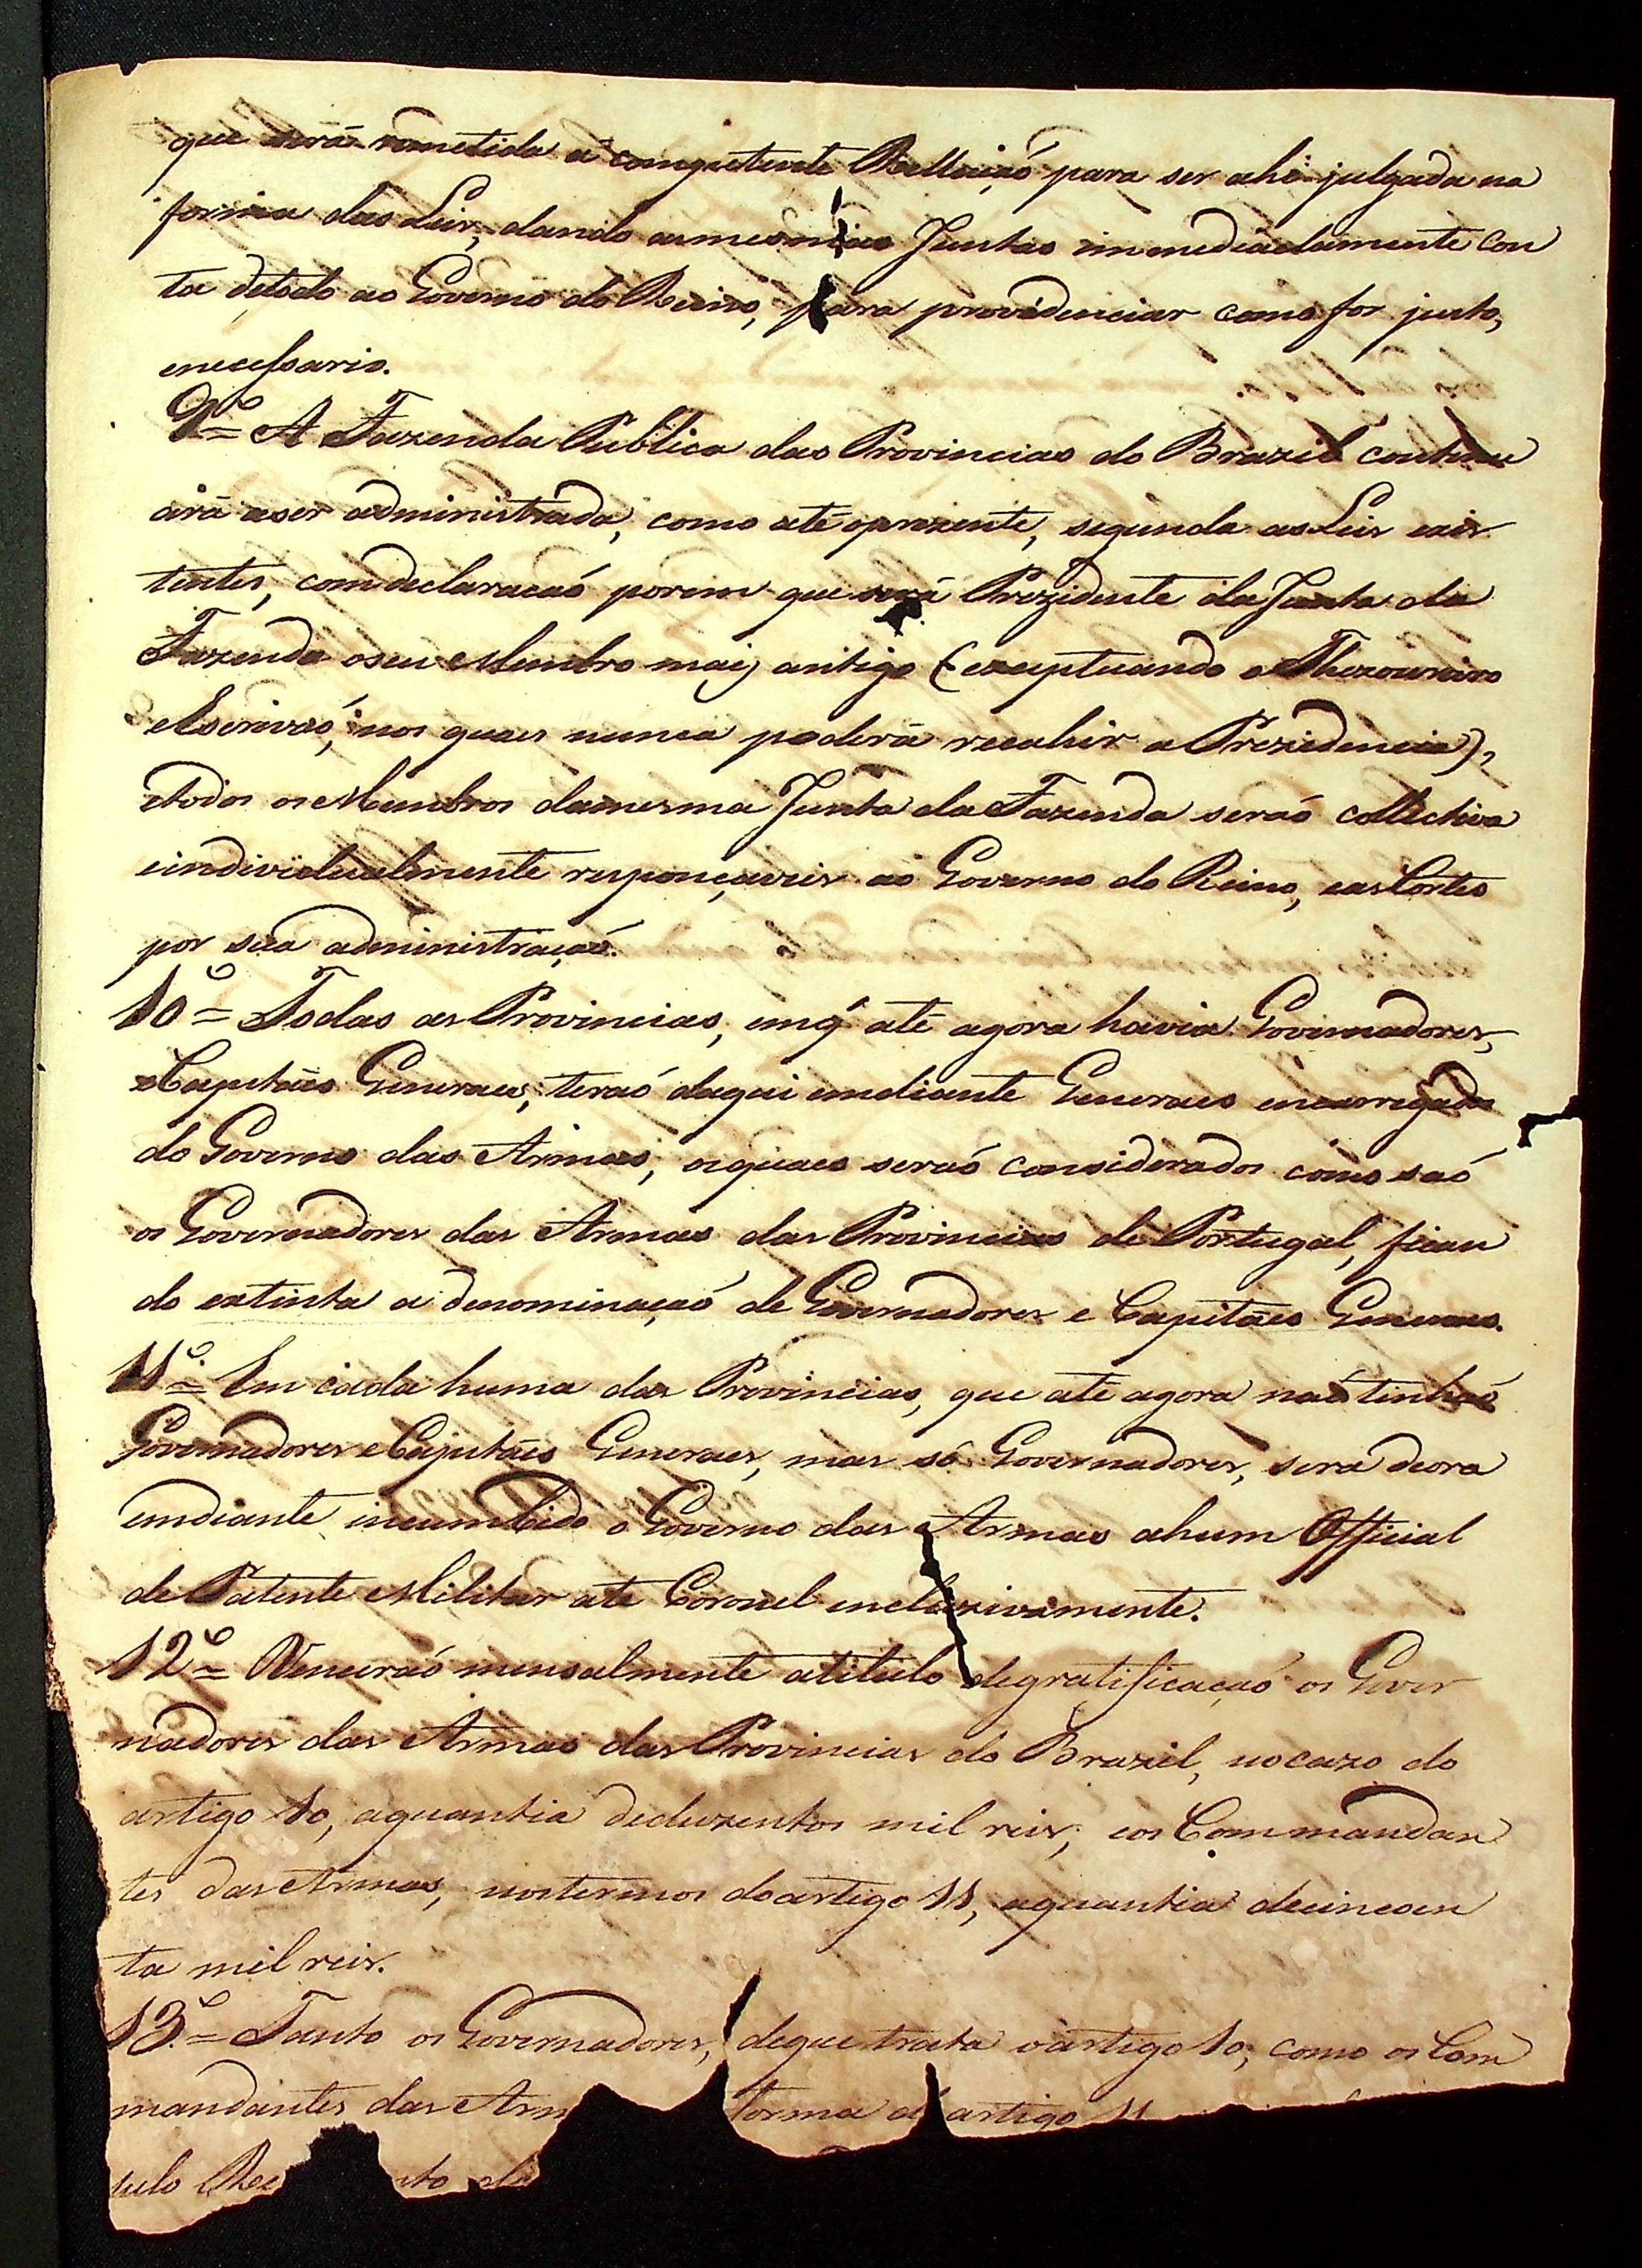 que será remetida a competente Rellaçaó para ser ahi julgada na
forma das Leis, dando as mesmas Juntas immediatamente Con
ta detodo ao Governo do Reino, para providenciar como for justo,
enecessario.
9º = A Fazenda Publica das Provincias do Brazil continu
ará aser administrada, como até oprezente, segundo as Leis exis
tentes, comdeclaracaó porem que será Prezidente da Junta da
Fazenda oseu Membro mais antigo (exceptuando o Thezoureiro
eEscrivaó, nos quaes nunca poderá recahir a Prezidencia),
etodos os Membros damesma Junta da Fazenda seraó collectiva
eindividualmente responçaveis ao Governo do Reino, eas Cortes
por sua administraçaó.
10º = Todas as Provincias, emq' até agora havia Governadores,
eCapitães Generaes, teraó daqui emdiante Generaes encarregados
do Governo das Armas, osquaes seraó considerados como saó
os Governadores das Armas das Provincias de Portugal, fican
do extinta a denominaçaó de Governadores e Capitães Generaes.
11º = Em cada huma das Provincias, que até agora naó tinhaó
Governadores eCapitães Generaes, mas só Governadores, será deora
emdiante incumbido o Governo das Armas ahum Official
de Patente Militar até Coronel incluzivamente.
12º = Venceraó mensalmente atitulo degratificaçaó os Gover
nadores das Armas das Provincias do Brazil, nocazo do
artigo 10, aquantia deduzentos mil reis, eos Commandan
tes das Armas, nostermos doartigo 11, aquantia decincoen
ta mil reis.
13.º = Tanto os Governadores, deque trata oartigo 10, como os Com
mandantes das Arm forma d artigo 11
tulo Re to d